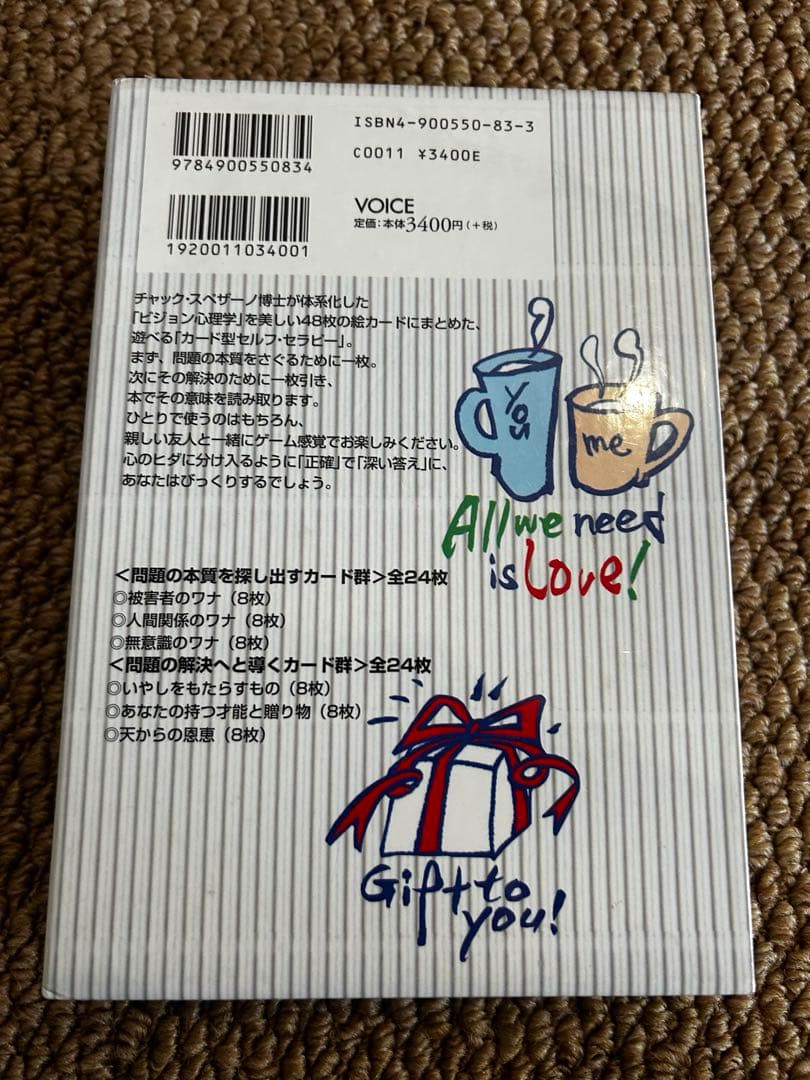 ISBN4-900550-83-3
9784900550834
C0011 ¥3400E
VOICE
定価:本体3400円(+税)
1920011034001
チャック・スペザーノ博士が体系化した
「ビジョン心理学」を美しい48枚の絵カードにまとめた、
遊べる「カード型セルフ・セラピー」。
まず、問題の本質をさぐるために一枚。
次にその解決のために一枚引き、
本でその意味を読み取ります。
ひとりで使うのはもちろん、
親しい友人と一緒にゲーム感覚でお楽しみください。
心のヒダに分け入るように「正確」で「深い答え」に、
あなたはびっくりするでしょう。
You
me
All we need
is Love!
<問題の本質を探し出すカード群>全24枚
◎被害者のワナ(8枚)
◎人間関係のワナ(8枚)
◎無意識のワナ(8枚)
<問題の解決へと導くカード群>全24枚
◎いやしをもたらすもの(8枚)
◎あなたの持つ才能と贈り物(8枚)
◎天からの恩恵(8枚)
Gift to
you!